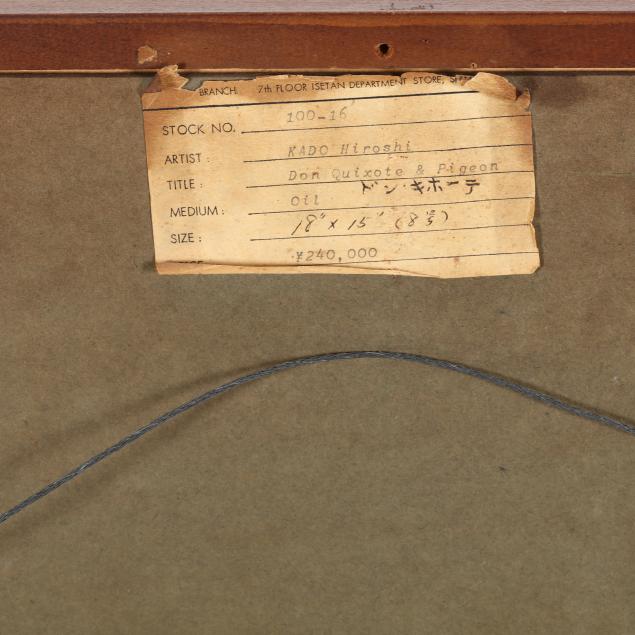 BRANCH 7th FLOOR ISETAN DEPARTMENT STORE,
STOCK NO. 100-16
ARTIST : KADO Hiroshi
TITLE : Don Quixote & Pigeon
ドン・キホーテ
MEDIUM : Oil
SIZE : 18" x 15" (8号)
¥240,000